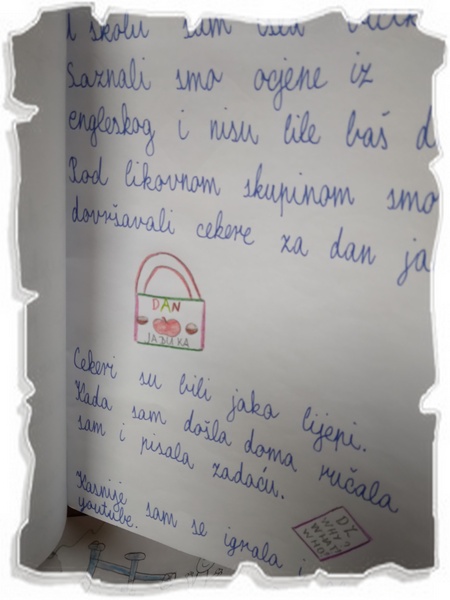 školu sam išla
Saznali smo ocjene iz
engleskog i nisu bile baš d
Pod likovnom skupinom smo
dovršavali cekere za dan ja
DAN
JABUKA
Cekeri su bili jako lijepi.
Kada sam došla doma ručala
sam i pisala zadaću.
Kasnije sam se igrala i
youtube.
DZ
WHAT?
WHAT?
WHO?